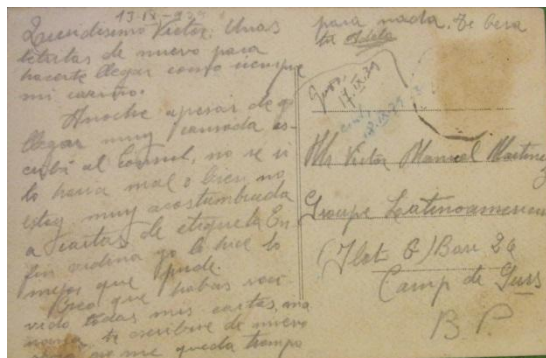 13-IX-939
Queridisimo Victor: Unas
letritas de nuevo para
hacerte llegar como siempre
mi cariño.
Anoche apesar de q
llegar muy cansada es-
cribí al Consul, no se si
lo haria mal o bien, no
estoy muy acostumbrada
a cartas de etiqueta En
fin lo hice lo
mejor que pude.
Creo que habas reci-
vido todas mis cartas, ma
ñana te escribire de nuevo
me queda tiempo
para nada. Te besa
tu Adela
Gurs
17.IX.39
18.IX.39
Mr Victor Manuel Martinez
Groupe Latinoamerican
(Ilot G) Bar 26
Camp de Gurs
B. P.